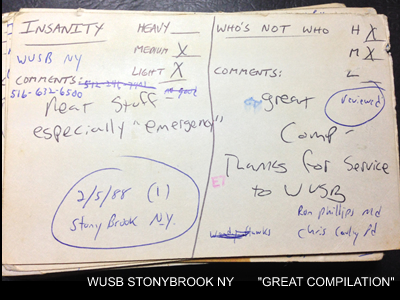 INSANITY
HEAVY
WUSB NY
MEDIUM X
LIGHT X
COMMENTS:
516-632-6500
no good
Neat Stuff
especially "emergency"
2/5/88 (1)
Stony Brook N.Y.
WHO'S NOT WHO H X
M X
COMMENTS: L
great
reviewed
Comp-
Thanks for Service
to WUSB
Ron Phillips md
Chris
WUSB STONYBROOK NY "GREAT COMPILATION"